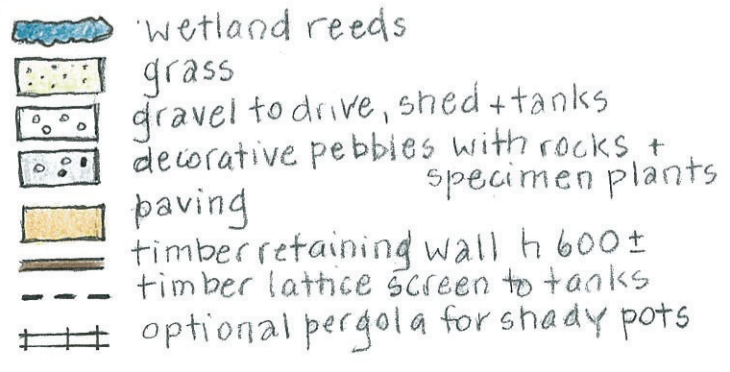 wetland reeds
grass
gravel to drive, shed + tanks
decorative pebbles with rocks +
specimen plants
paving
timber retaining wall h 600±
timber lattice screen to tanks
optional pergola for shady pots